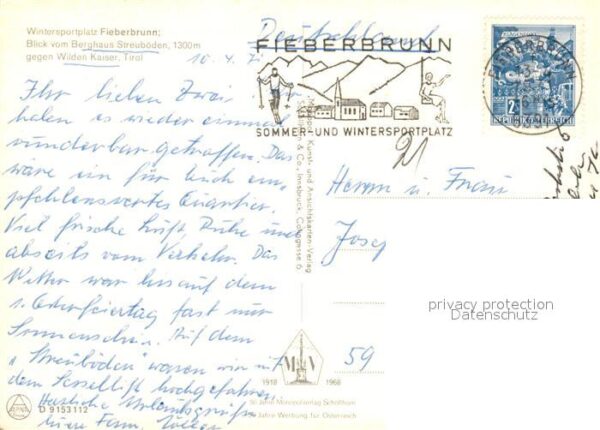 Wintersportplatz Fieberbrunn;
Blick vom Berghaus Streuböden, 1300m
gegen Wilden Kaiser, Tirol
10.4.71
Deutschland
FIEBERBRUNN
SOMMER- UND WINTERSPORTPLATZ
FIEBERBRUNN
REPUBLIK ÖSTERREICH
Ihr lieben Zwei, Wir
haben es wieder einmal
wunderbar getroffen. Das
wäre ein für Euch em-
pfehlenswertes Quartier.
Viel frische Luft, Ruhe und
abseits vom Verkehr. Das
Wetter war bis auf dem
1. Osterfeiertag fast nur
Sonnenschein. Auf dem
"Streuböden" waren wir mit
dem Sessellift hochgefahren.
Herzliche Urlaubsgrüße
Eure Fam.
Kunst- und Ansichtskarten-Verlag
& Co., Innsbruck,
21
Herrn u. Frau
Josef
59
privacy protection
Datenschutz
1918 1968
50 Jahre Werbung für Österreich
D 9153112